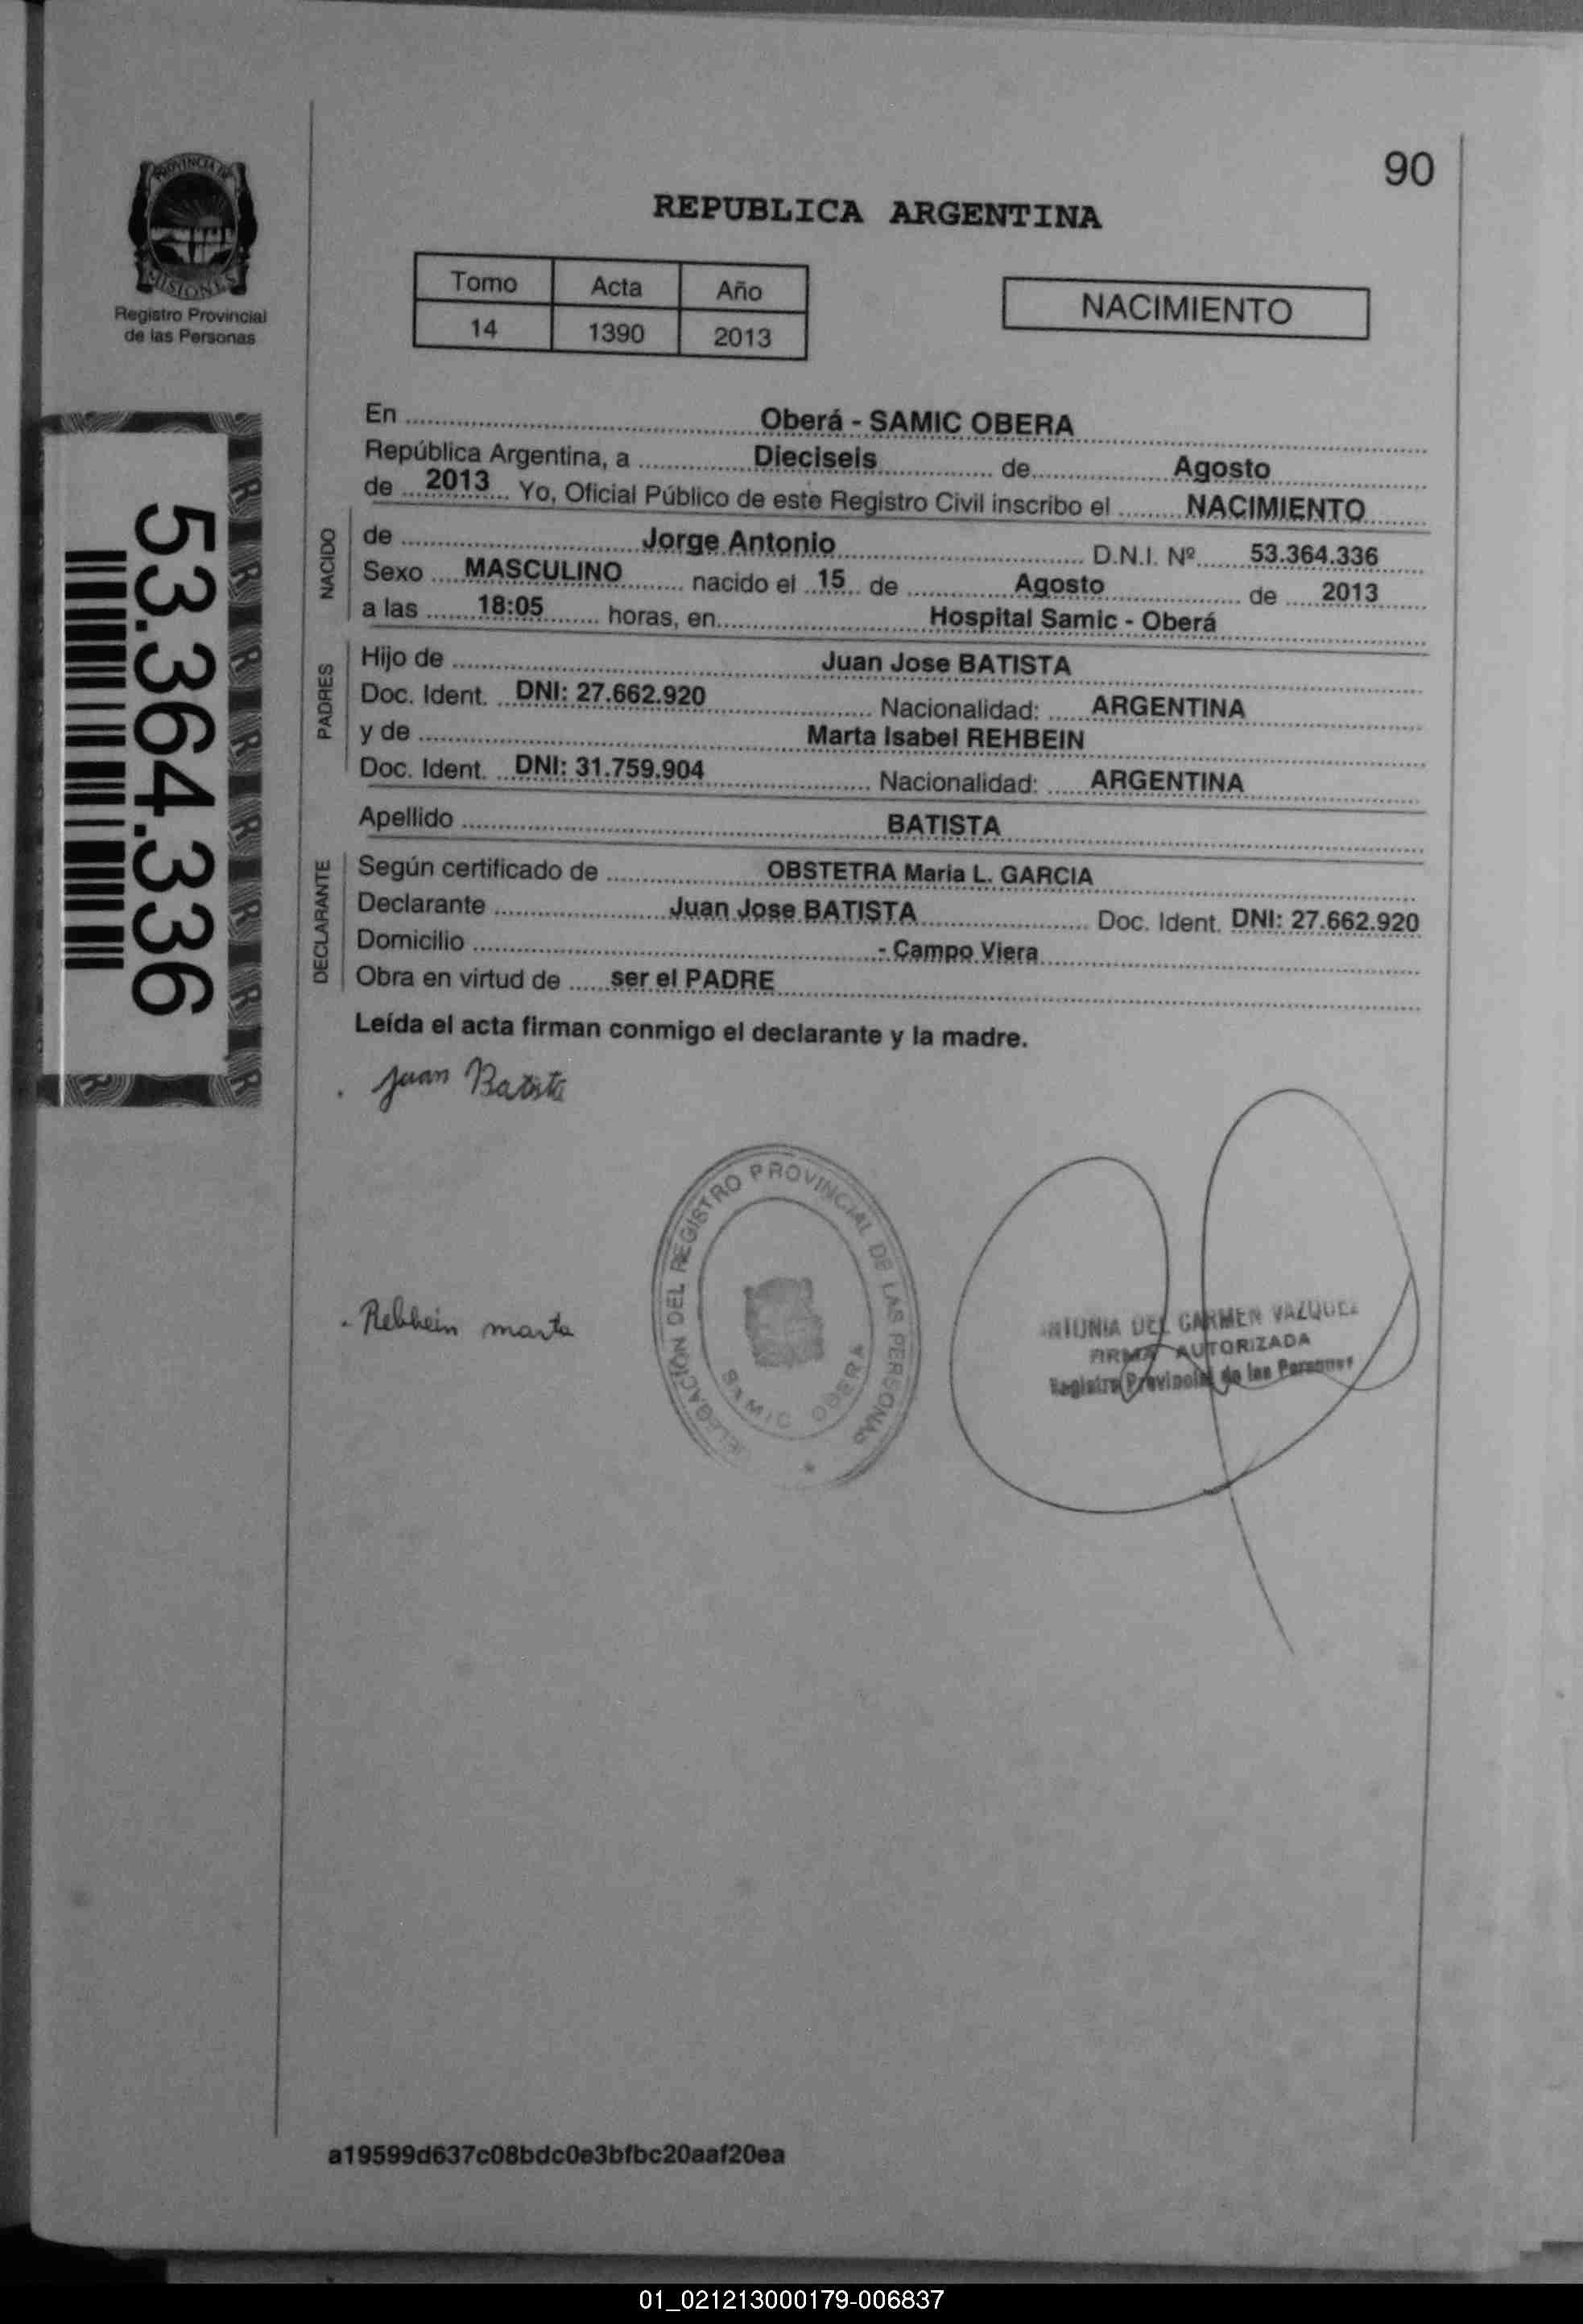 90
PROVINCIA DE
MISIONES
Registro Provincial
de las Personas
REPUBLICA ARGENTINA
Tomo Acta Año
14 1390 2013
NACIMIENTO
53.364.336
En Oberá - SAMIC OBERA
República Argentina, a Dieciseis de Agosto
de 2013 Yo, Oficial Público de este Registro Civil inscribo el NACIMIENTO
NACIDO
de Jorge Antonio D.N.I. Nº 53.364.336
Sexo MASCULINO nacido el 15 de Agosto de 2013
a las 18:05 horas, en Hospital Samic - Oberá
PADRES
Hijo de Juan Jose BATISTA
Doc. Ident. DNI: 27.662.920 Nacionalidad: ARGENTINA
y de Marta Isabel REHBEIN
Doc. Ident. DNI: 31.759.904 Nacionalidad: ARGENTINA
Apellido BATISTA
DECLARANTE
Según certificado de OBSTETRA Maria L. GARCIA
Declarante Juan Jose BATISTA Doc. Ident. DNI: 27.662.920
Domicilio - Campo Viera
Obra en virtud de ser el PADRE
Leída el acta firman conmigo el declarante y la madre.
Juan Batista
ELEGACIÓN DEL REGISTRO PROVINCIAL DE LAS PERSONAS
SAMIC OBERA
Rehbein marta
DEL CARMEN VAZQUEZ
FIRMA AUTORIZADA
Registro Provincial de las Personas
a19599d637c08bdc0e3bfbc20aaf20ea
01_021213000179-006837